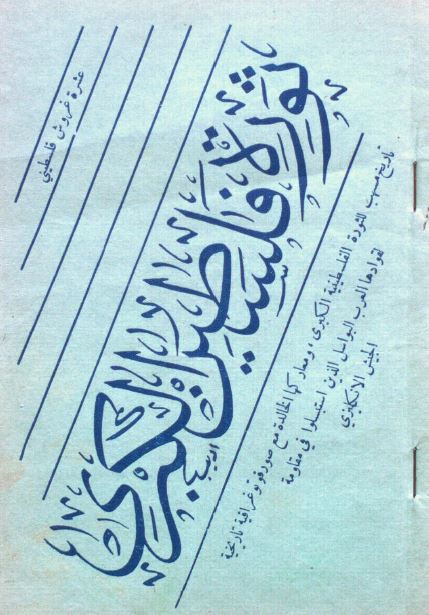 عشرة غروش فلسطيني
ثورة فلسطين الكبرى
تاريخ مسهب للثورة الفلسطينية الكبرى، ومعاركها الخالدة مع صور فوتوغرافية تاريخية
لقوادها العرب البواسل الذين استبسلوا في مقاومة
الجيش الانكليزي